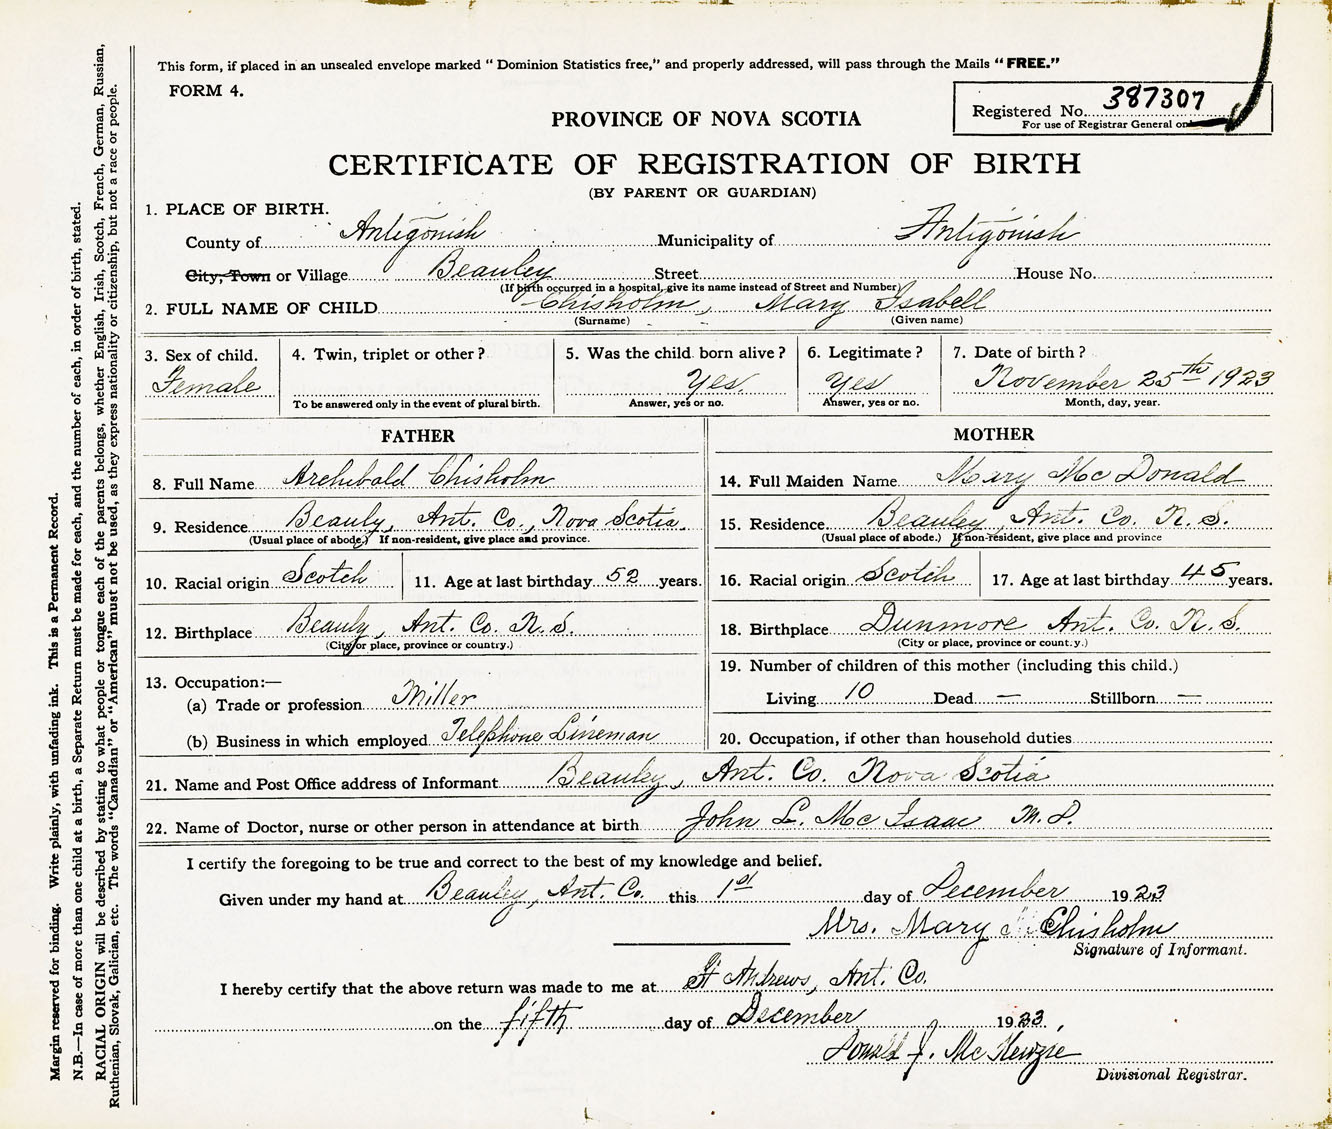 This form, if placed in an unsealed envelope marked "Dominion Statistics free," and properly addressed, will pass through the Mails "FREE."
FORM 4.
Registered No. 387307
For use of Registrar General only
PROVINCE OF NOVA SCOTIA
CERTIFICATE OF REGISTRATION OF BIRTH
(BY PARENT OR GUARDIAN)
1. PLACE OF BIRTH.
County of Antigonish Municipality of Antigonish
City, Town or Village Beauley Street House No.
(If birth occurred in a hospital, give its name instead of Street and Number)
2. FULL NAME OF CHILD Chisholm, Mary Isabell
(Surname) (Given name)
3. Sex of child. 4. Twin, triplet or other? 5. Was the child born alive? 6. Legitimate? 7. Date of birth?
Female Yes Yes November 25th 1923
To be answered only in the event of plural birth. Answer, yes or no. Answer, yes or no. Month, day, year.
FATHER
8. Full Name Archibald Chisholm
9. Residence Beauly, Ant. Co., Nova Scotia.
(Usual place of abode.) If non-resident, give place and province.
10. Racial origin Scotch 11. Age at last birthday 52 years.
12. Birthplace Beauly, Ant. Co. N.S.
(City or place, province or country.)
13. Occupation:—
(a) Trade or profession Miller
(b) Business in which employed Telephone Lineman
MOTHER
14. Full Maiden Name Mary McDonald
15. Residence Beauley, Ant. Co. N.S.
(Usual place of abode.) If non-resident, give place and province
16. Racial origin Scotch 17. Age at last birthday 45 years.
18. Birthplace Dunmore Ant. Co. N.S.
(City or place, province or country.)
19. Number of children of this mother (including this child.)
Living 10 Dead — Stillborn —
20. Occupation, if other than household duties
21. Name and Post Office address of Informant Beauley, Ant. Co. Nova Scotia
22. Name of Doctor, nurse or other person in attendance at birth John L. McIsaac M.D.
I certify the foregoing to be true and correct to the best of my knowledge and belief.
Given under my hand at Beauley, Ant. Co. this 1st day of December 1923
Mrs. Mary Chisholm
Signature of Informant.
I hereby certify that the above return was made to me at St Andrews, Ant. Co.
on the fifth day of December 1923,
Donald J. McKenzie
Divisional Registrar.
Margin reserved for binding. Write plainly, with unfading ink. This is a Permanent Record.
N.B.—In case of more than one child at a birth, a Separate Return must be made for each, and the number of each, in order of birth, stated.
RACIAL ORIGIN will be described by stating to what people or tongue each of the parents belongs, whether English, Irish, Scotch, French, German, Russian,
Ruthenian, Slovak, Galician, etc. The words "Canadian" or "American" must not be used, as they express nationality or citizenship, but not a race or people.